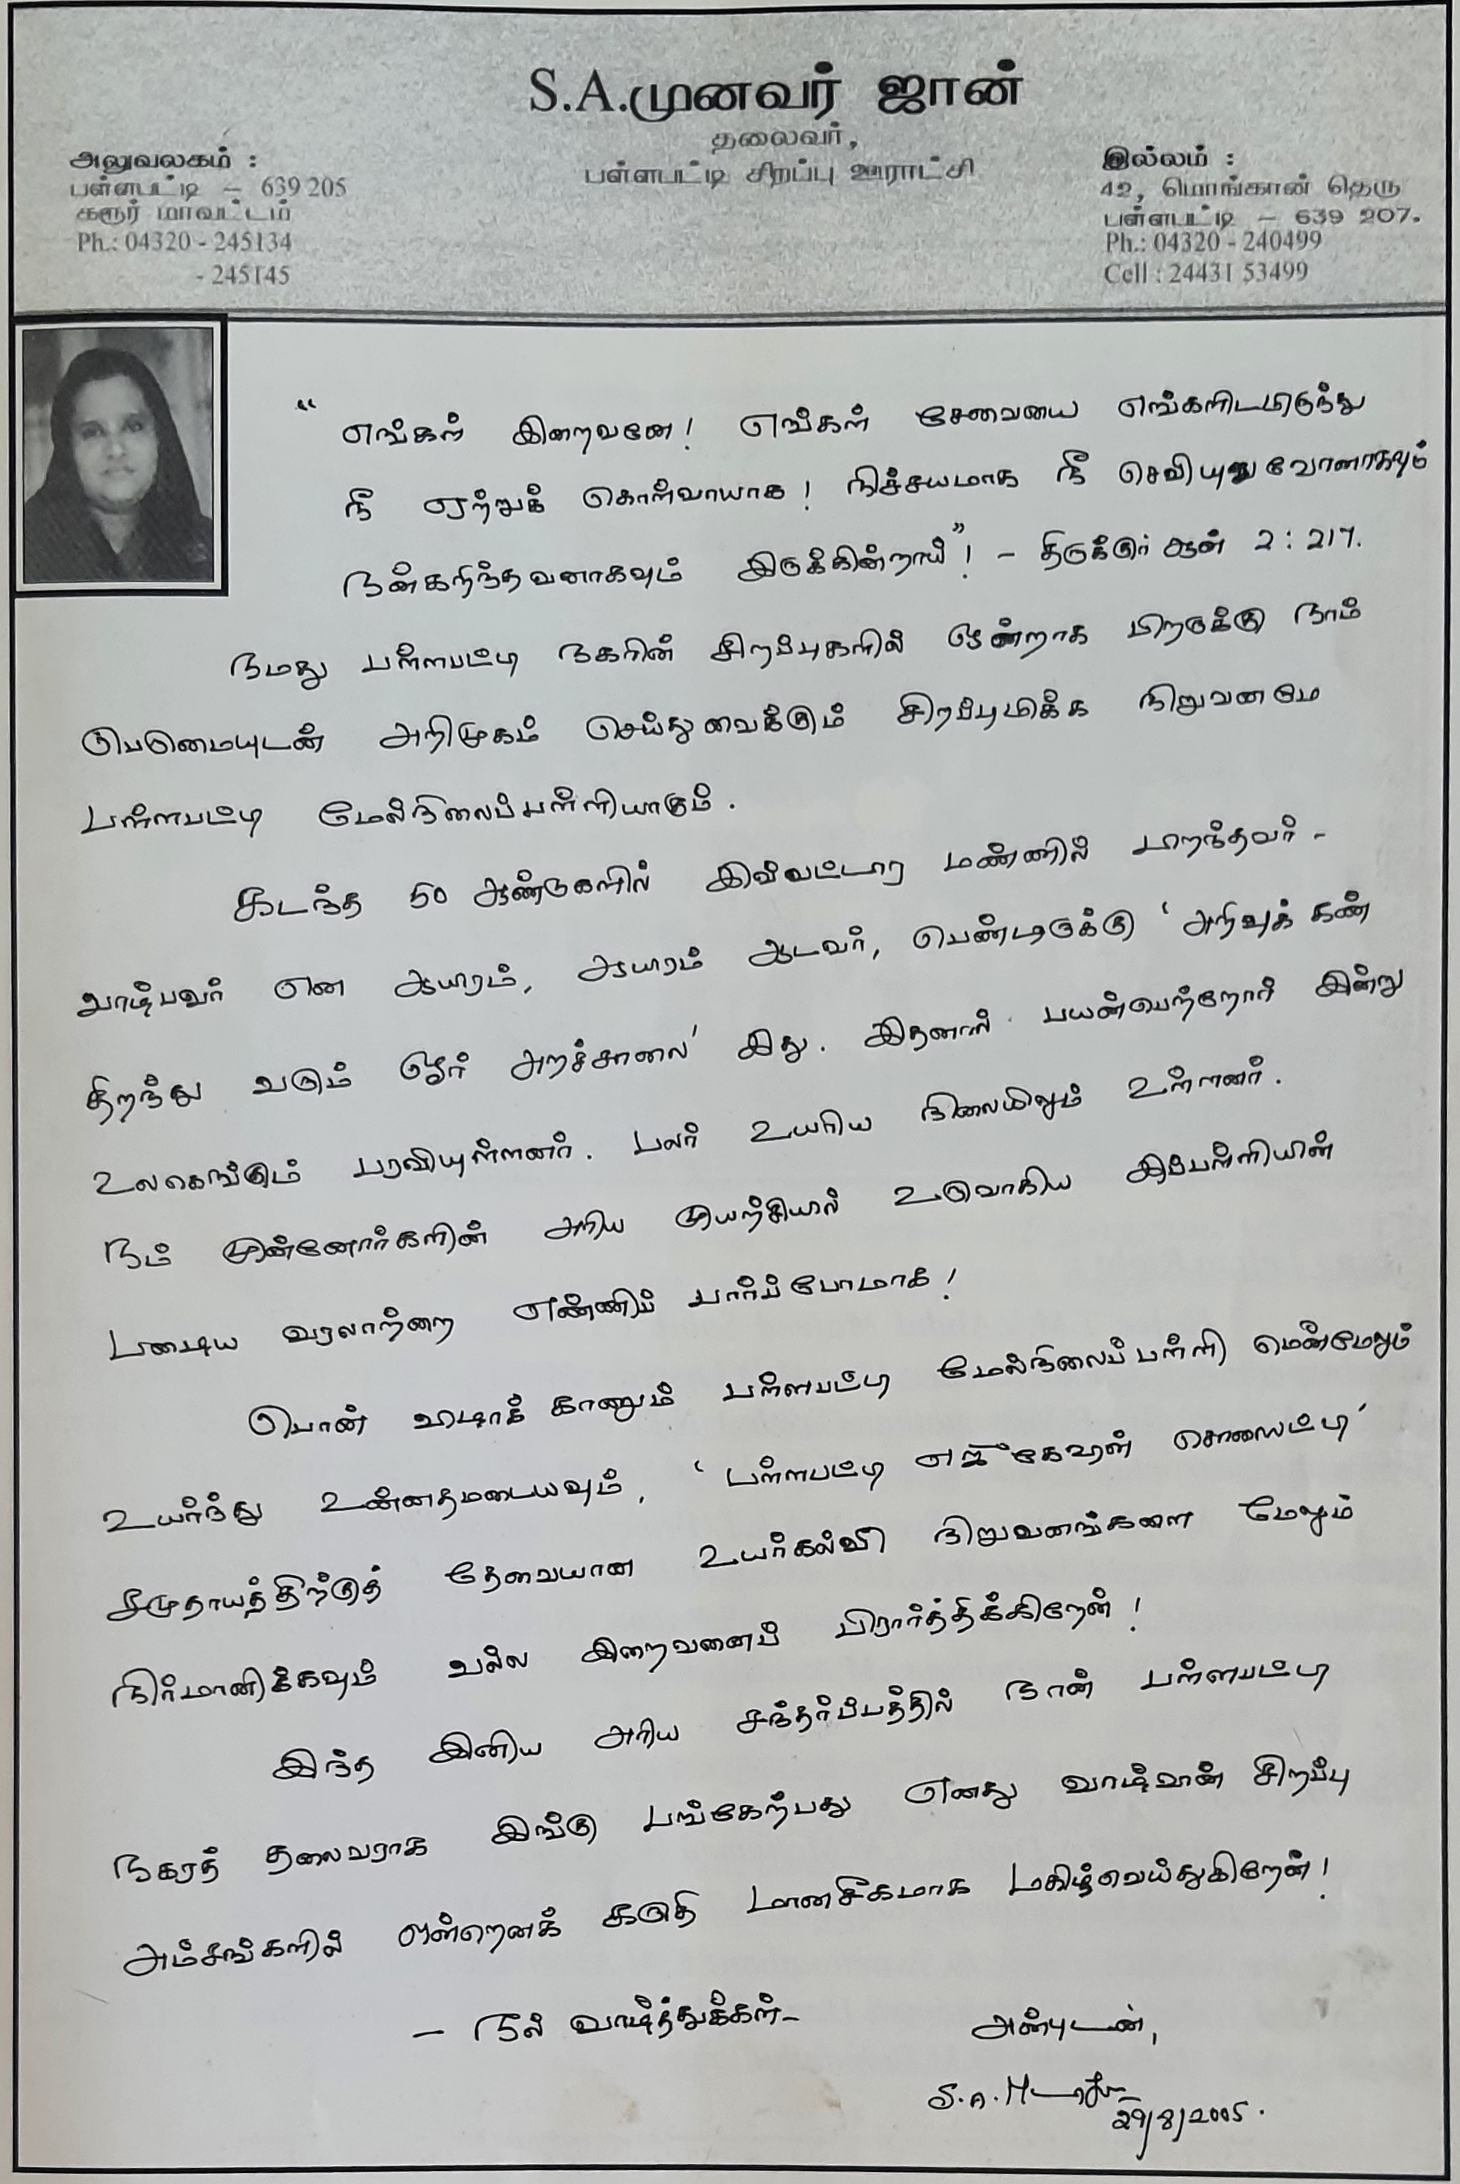 S.A.முனவர் ஜான்
தலைவர்,
பள்ளபட்டி சிறப்பு ஊராட்சி
அலுவலகம் :
பள்ளபட்டி – 639 205
கரூர் மாவட்டம்
Ph.: 04320 - 245134
- 245145
இல்லம் :
42, மொங்கான் தெரு
பள்ளபட்டி – 639 207.
Ph.: 04320 - 240499
Cell : 24431 53499
“ எங்கள் இறைவனே! எங்கள் சேவையை எங்களிடமிருந்து
நீ ஏற்றுக் கொள்வாயாக! நிச்சயமாக நீ செவியுறுவோனாகவும்
நன்கறிந்தவனாகவும் இருக்கின்றாய்”! – திருக்குர்ஆன் 2:217.
நமது பள்ளபட்டி நகரின் சிறப்புகளில் ஒன்றாக பிறருக்கு நாம்
பெருமையுடன் அறிமுகம் செய்துவைக்கும் சிறப்புமிக்க நிறுவனமே
பள்ளபட்டி மேல்நிலைப்பள்ளியாகும்.
கடந்த 50 ஆண்டுகளில் இவ்வட்டார மண்ணில் பிறந்தவர் -
வாழ்பவர் என ஆயிரம், ஆயிரம் ஆடவர், பெண்டிருக்கு ‘அறிவுக் கண்
திறந்து வரும் ஓர் அறச்சாலை’ இது. இதனால் பயன்பெற்றோர் இன்று
உலகெங்கும் பரவியுள்ளனர். பலர் உயரிய நிலையிலும் உள்ளனர்.
நம் முன்னோர்களின் அரிய முயற்சியால் உருவாகிய இப்பள்ளியின்
பழைய வரலாற்றை எண்ணிப் பார்ப்போமாக!
பொன் விழாக் காணும் பள்ளபட்டி மேல்நிலைப்பள்ளி மென்மேலும்
உயர்ந்து உன்னதமடையவும், ‘பள்ளபட்டி எஜுகேஷன் சொஸைட்டி’
சமுதாயத்திற்குத் தேவையான உயர்கல்வி நிறுவனங்களை மேலும்
நிர்மாணிக்கவும் வல்ல இறைவனைப் பிரார்த்திக்கிறேன்!
இந்த இனிய அரிய சந்தர்ப்பத்தில் நான் பள்ளபட்டி
நகரத் தலைவராக இங்கு பங்கேற்பது எனது வாழ்வின் சிறப்பு
அம்சங்களில் ஒன்றெனக் கருதி மானசீகமாக மகிழ்வெய்துகிறேன்!
– நல் வாழ்த்துக்கள் –
அன்புடன்,
29/8/2005.